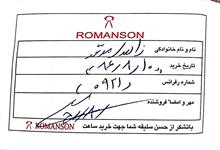 ROMANSON
نام و نام خانوادگی
تاریخ خرید ۸۶/۸/۱۵
شماره رفرانس (۰۹۲۱)
مهر و امضاء فروشنده
ROMANSON
باتشکر از حسن سلیقه شما جهت خرید ساعت